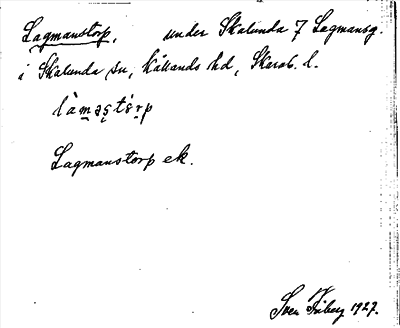 Lagmanstorp, under Skalunda 7 Lagmansg.
i Skalunda sn, Kållands hd, Skarab. l.
làmạstórp
Lagmanstorp ek.
Sven Friberg 1927.